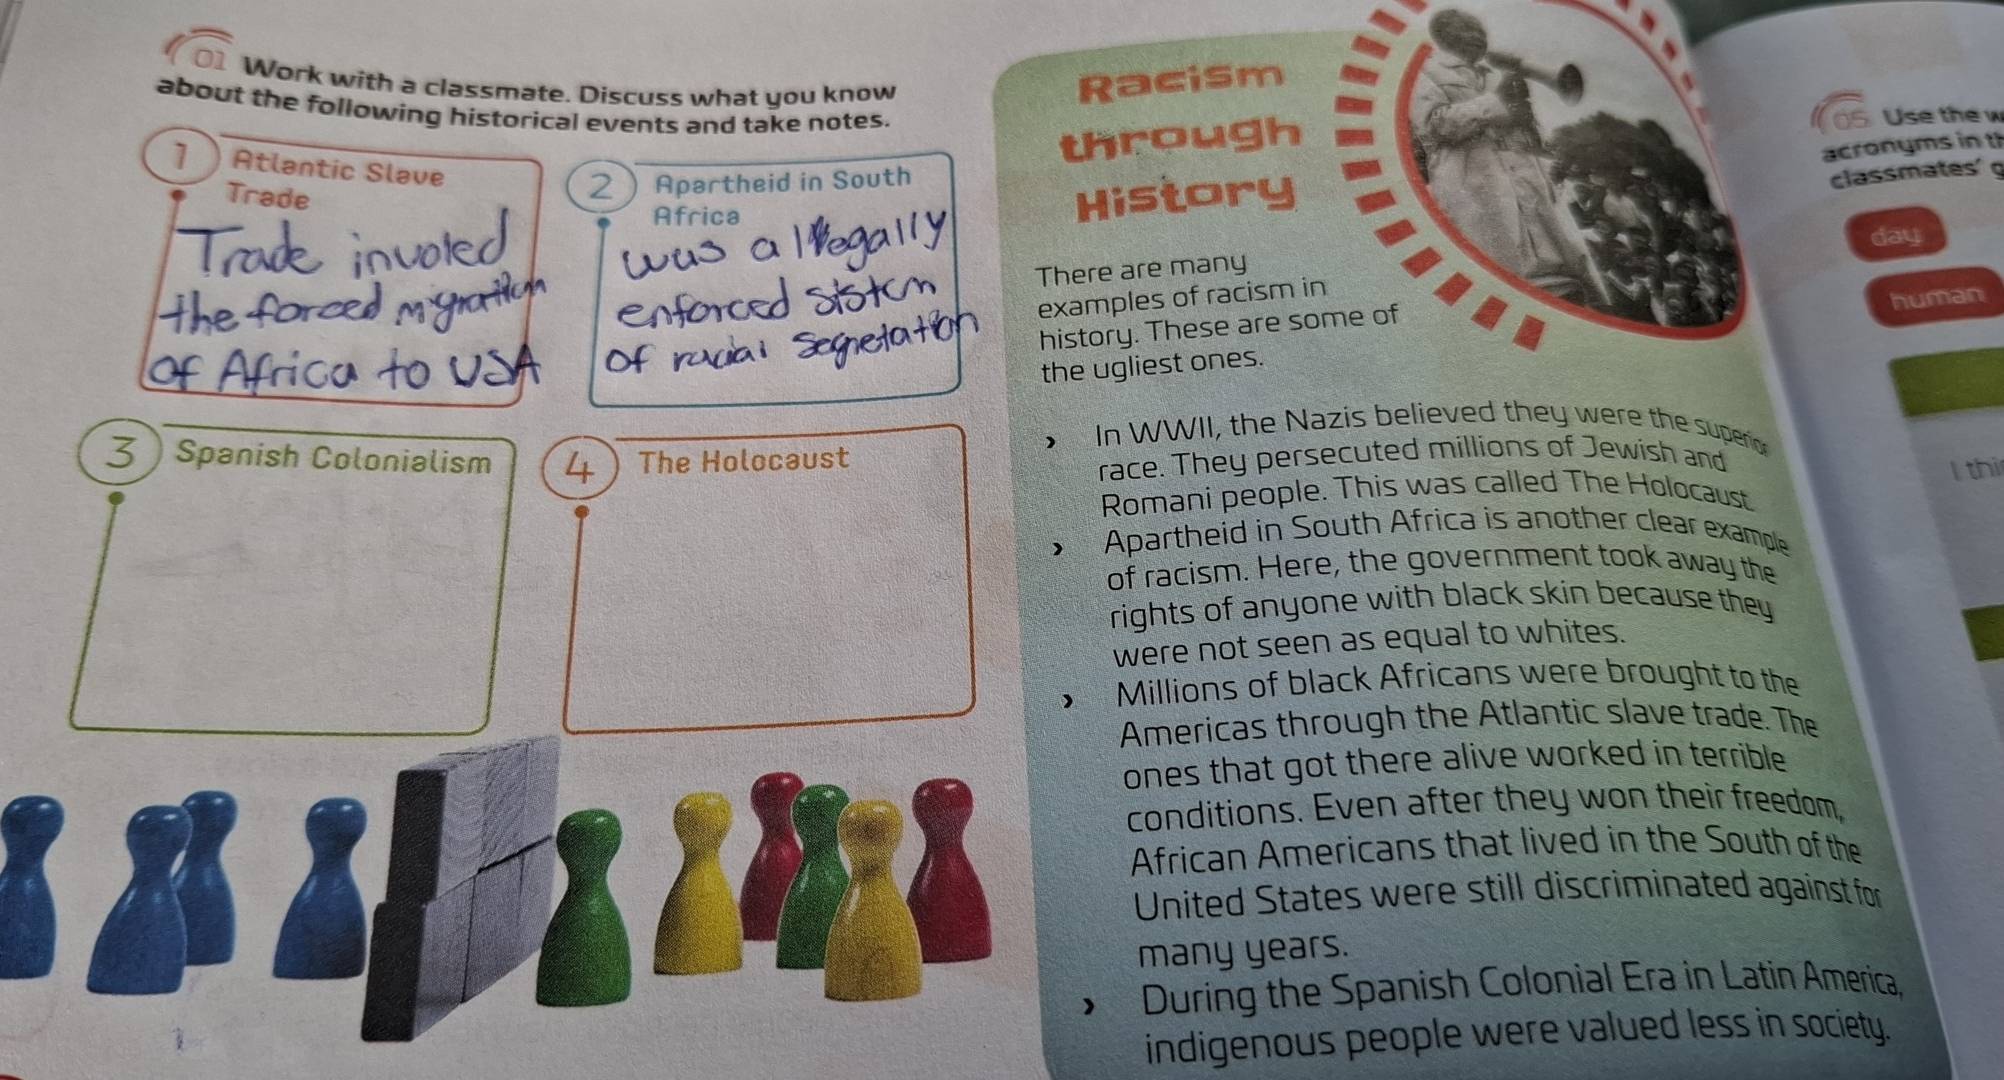 01 Work with a classmate. Discuss what you know
about the following historical events and take notes.
1 Atlantic Slave
Trade
Trade involed
the forced migration
of Africa to USA
2 Apartheid in South
Africa
was a llegally
enforced sistem
of racial segretation
3 Spanish Colonialism
4 The Holocaust
Racism
through
History
There are many
examples of racism in
history. These are some of
the ugliest ones.
› In WWII, the Nazis believed they were the superior
race. They persecuted millions of Jewish and
Romani people. This was called The Holocaust.
› Apartheid in South Africa is another clear example
of racism. Here, the government took away the
rights of anyone with black skin because they
were not seen as equal to whites.
› Millions of black Africans were brought to the
Americas through the Atlantic slave trade. The
ones that got there alive worked in terrible
conditions. Even after they won their freedom,
African Americans that lived in the South of the
United States were still discriminated against for
many years.
› During the Spanish Colonial Era in Latin America,
indigenous people were valued less in society.
05 Use the
acronyms in
classmates'
day
human
I